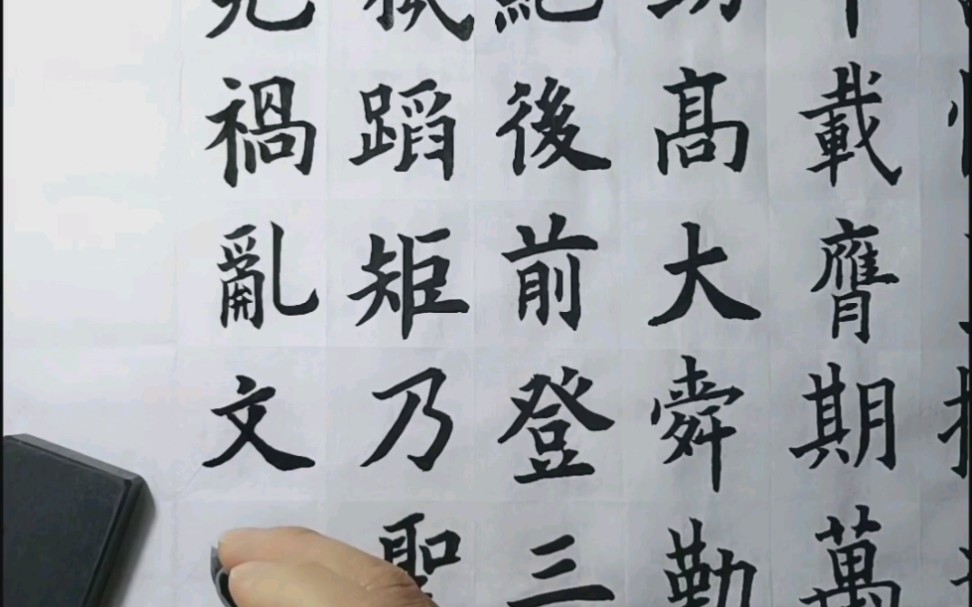 載膺期萬
髙大舜勤
後前登三
蹈矩乃聖
禍亂文